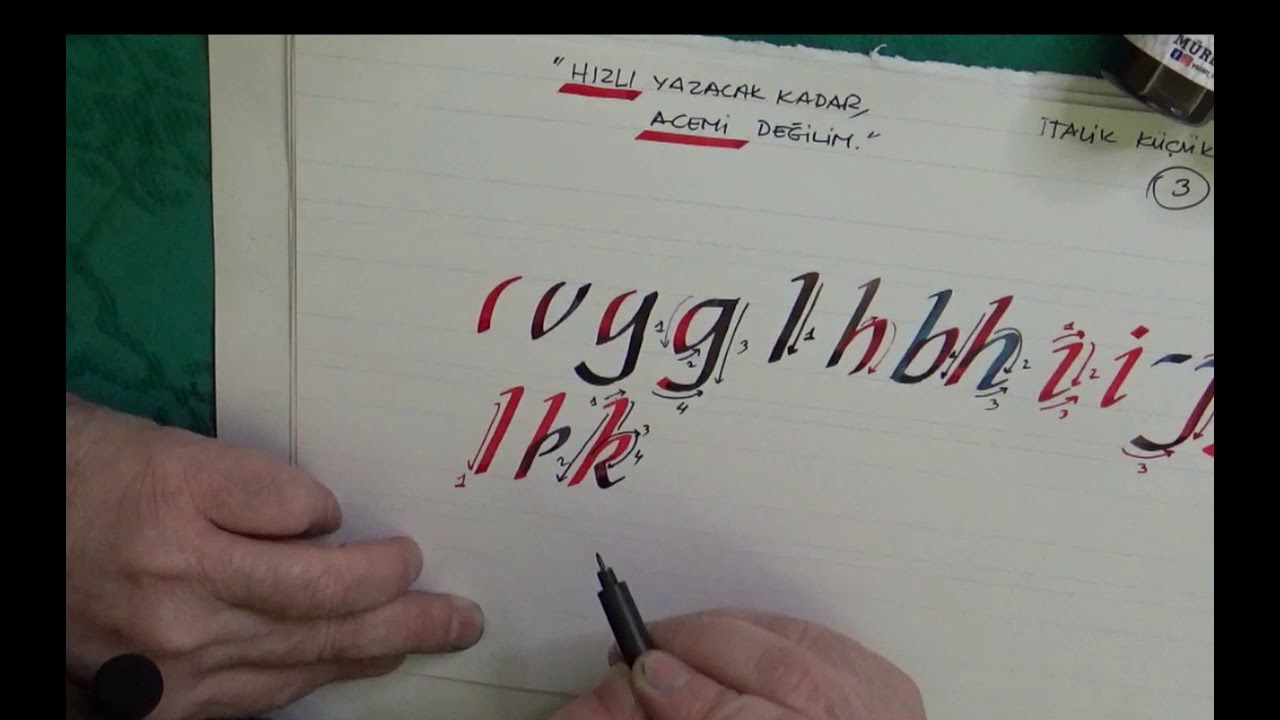 "HIZLI YAZACAK KADAR,
ACEMİ DEĞİLİM."
İTALİK KÜÇÜK
3
MÜRE
v y g l h b h i i
1 2 3 4 1 2 3 1 2 3 3
l k
1 1 2 3 4